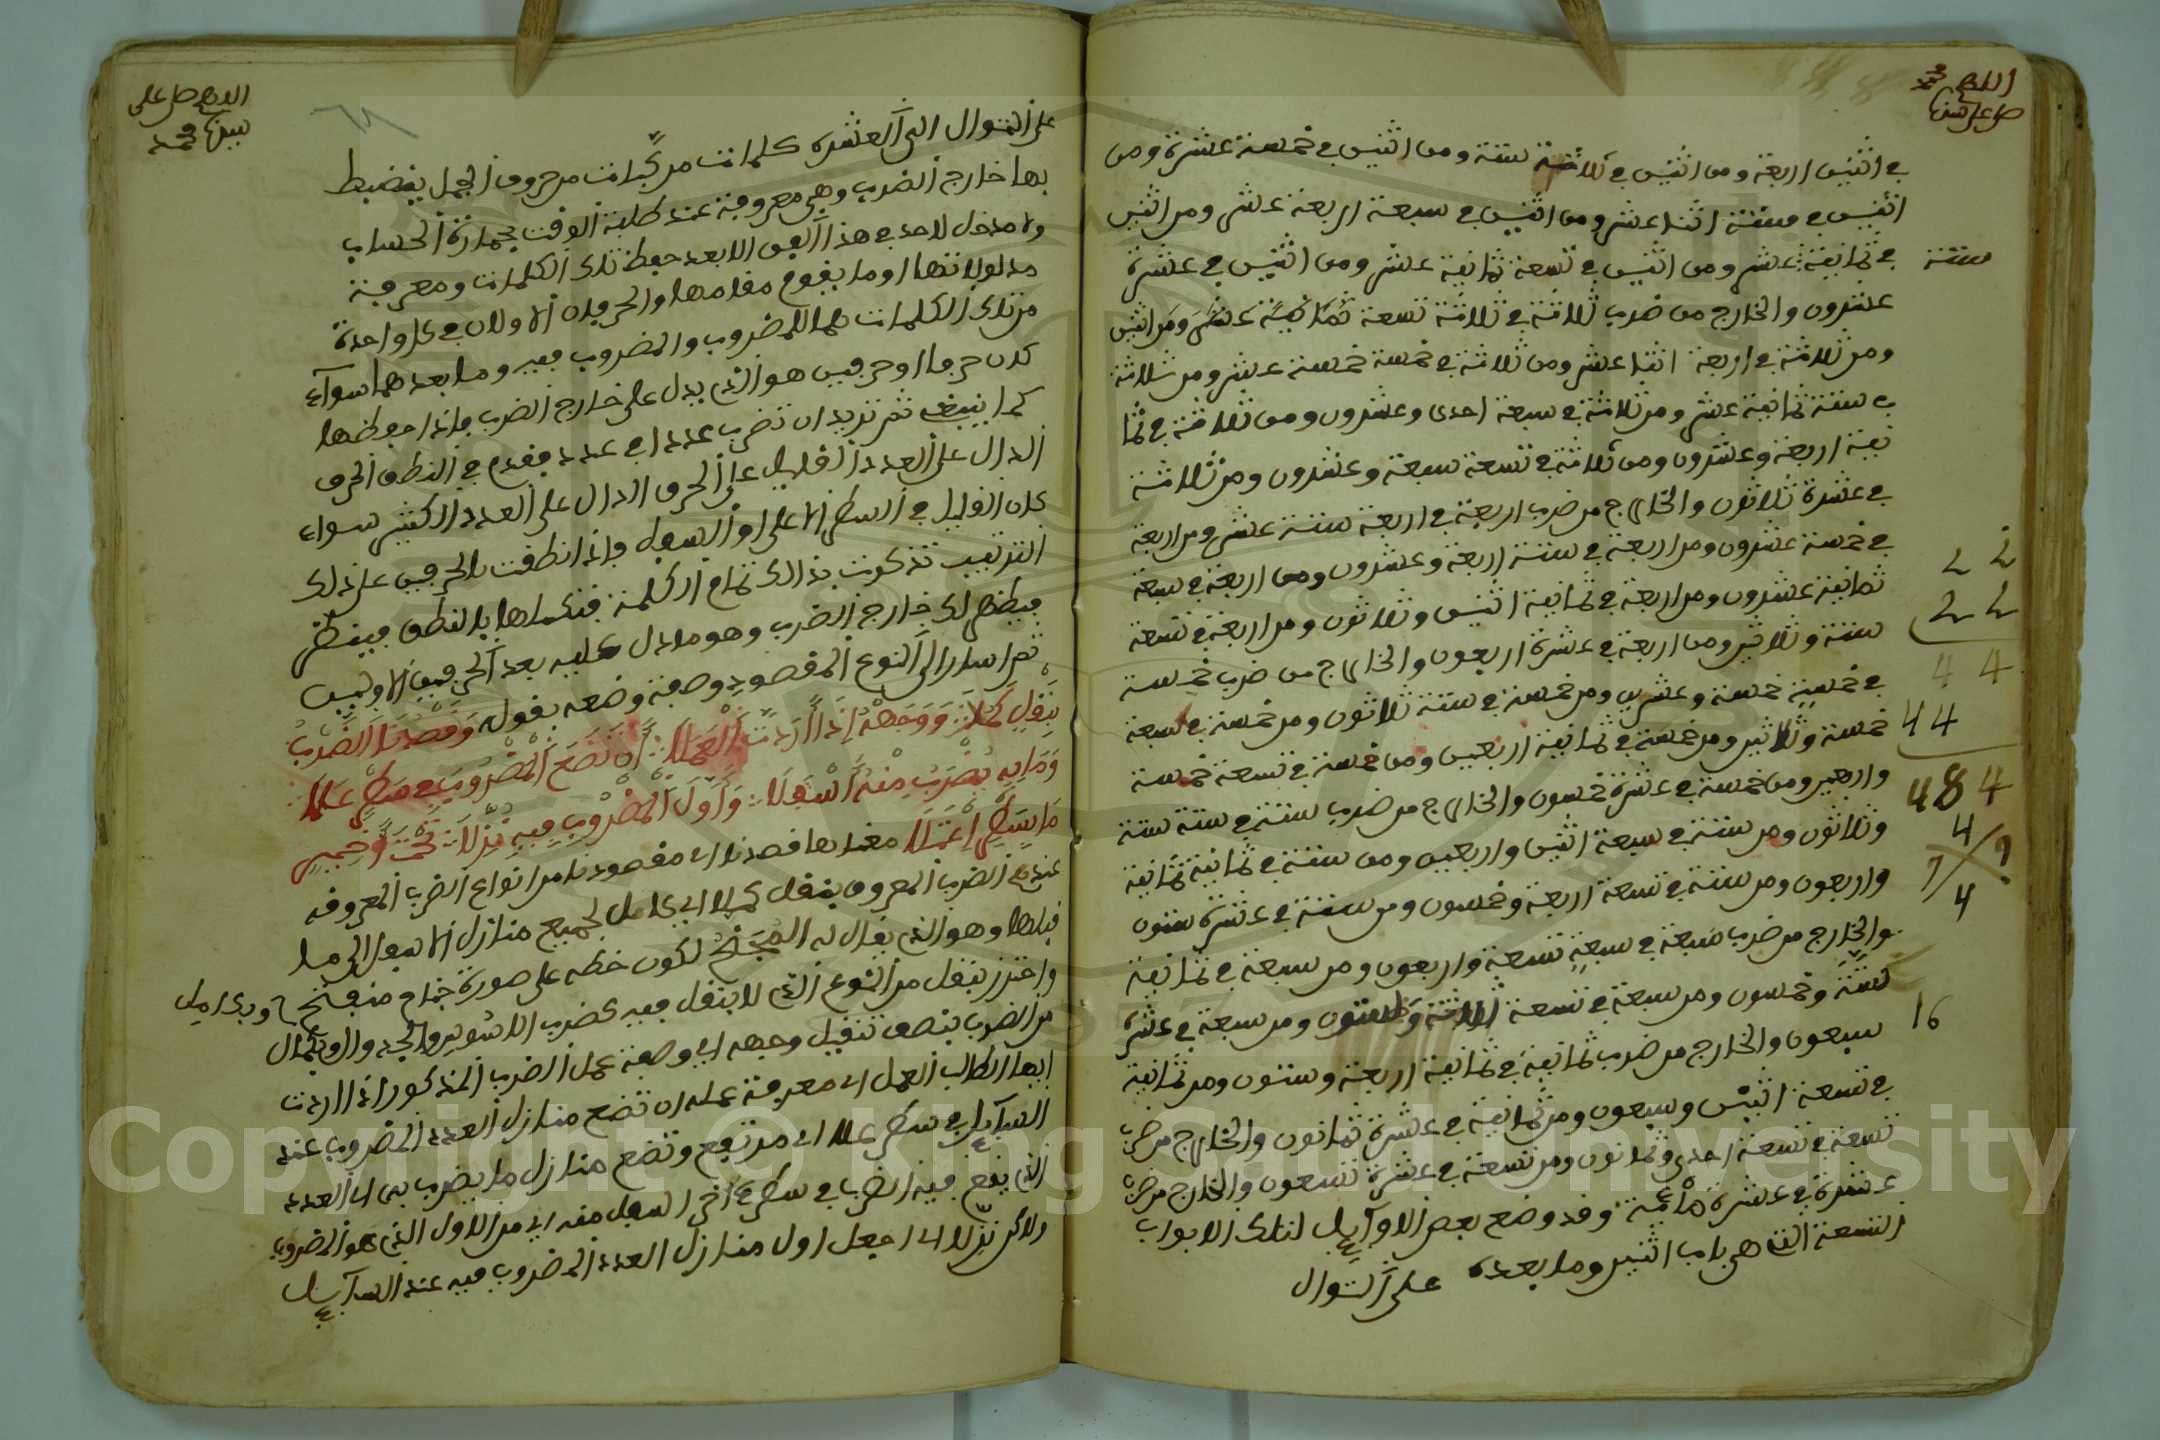 اللهم
صل على سيدنا محمد
في اثنين اربعة ومن اثنين في ثلاثة ستة ومن اثنين في خمسة عشرة ومن
اثنين في ستة اثنا عشر ومن اثنين في سبعة اربعة عشر ومن اثنين
في ثمانية عشر ومن اثنين في تسعة ثمانية عشر ومن اثنين في عشرة
ستة
عشرون والخارج من ضرب ثلاثة في ثلاثة تسعة ثمانية عشر ومن اثنين
ومن ثلاثة في اربعة اثنا عشر ومن ثلاثة في خمسة خمسة عشر ومن ثلاثة
في ستة ثمانية عشر ومن ثلاثة في سبعة احدى وعشرون ومن ثلاثة في ثما
نية اربعة وعشرون ومن ثلاثة في تسعة سبعة وعشرون ومن ثلاثة
في عشرة ثلاثون والخارج من ضرب اربعة في اربعة ستة عشر ومن اربعة
في خمسة عشرون ومن اربعة في ستة اربعة وعشرون ومن اربعة في سبعة
ثمانية عشرون ومن اربعة في ثمانية اثنين وثلاثون ومن اربعة في تسعة
ستة وثلاثين ومن اربعة في عشرة اربعون والخارج من ضرب خمسة
في خمسة خمسة وعشرين ومن خمسة في ستة ثلاثون ومن خمسة في سبعة
خمسة وثلاثين ومن خمسة في ثمانية اربعين ومن خمسة في تسعة خمسة
واربعين ومن خمسة في عشرة خمسون والخارج من ضرب ستة في ستة ستة
وثلاثون ومن ستة في سبعة اثنين واربعين ومن ستة في ثمانية ثمانية
واربعون ومن ستة في تسعة اربعة وخمسون ومن ستة في عشرة ستون
والخارج من ضرب سبعة في سبعة تسعة واربعون ومن سبعة في ثمانية
ستة وخمسون ومن سبعة في تسعة ثلاثة وستون ومن سبعة في عشرة
سبعون والخارج من ضرب ثمانية في ثمانية اربعة وستون ومن ثمانية
في تسعة اثنين وسبعون ومن ثمانية في عشرة ثمانون والخارج من ضرب
تسعة في تسعة احدى وثمانون ومن تسعة في عشرة تسعون والخارج من ضرب
عشرة في عشرة مائة وقد وضع بعض الاوايل لتلك الابواب
التسعة التي هي باب اثنين وما بعده على التوال
2 2
2 2
4 4
4 4
4 8 4
4
4
16
اللهم صل على
نبينا محمد
على التوال الى العشرة كلمات مركبات من حروف الجمل ينضبط
بها خارج الضرب وهي معروفة عند طلبة الوقت بجدارة الحساب
ولا مدخل لاحد في هذا الفن الا بعد حفظ تلك الكلمات ومعرفة
مدلولاتها او ما يقوم مقامها والحرفان الاولان في كل واحدة
من تلك الكلمات هما للمضروب والمضروب فيه وما بعدهما سواء
كان حرفا او حرفين هو الذي يدل على خارج الضرب فاذا حفظتها
كما ينبغي ثم تريد ان تضرب عددا في عدد فقدم في النطق الحرف
الدال على العدد القليل على الحرف الدال على العدد الكثير سواء
كان القليل في السطر الاعلى او السفل فاذا نطقت بالحرفين على ذلك
الترتيب تذكرت بذلك تمام الكلمة فتكملها بالنطق فيظهر
فيظهر لك خارج الضرب وهو ما دل عليه بعد الحرفين الاولين
ثم اشار الى النوع المقصود وصفة وضعه بقوله وقصدنا الضرب
بنقل كملا ووجهه اذا اردت العملا ان تضع المضروب في سطر علا
وما به يضرب منه اسفلا واول المضروب فيه نزلا تحت اخير
ما بسطر اعتلا معناها قصدنا اي مقصودنا من انواع الضرب المعروفة
عندهم الضرب المعروف بنقل كملا اي كامل لجميع منازل الاسفل الى ما
قبلها وهو الذي يقال له المجنح لكون خطه على صورة جناح منفتح
واحترز بنقل من النوع الذي لا ينقل فيه كضرب
من الضرب بنصف تنقيل ووجهه اي وصفة عمل الضرب المذكور اذا اردت
ايها الطالب العمل اي معرفة عمله ان تضع منازل العدد المضروب عند
السآيل في سطر علا اي مرتفع وتضع منازل ما يضرب به اي العدد
الذي يقع فيه الضرب في سطر اخر اسفل منه اي من الاول الذي هو المضروب
ولاكن نزلا اي اجعل اول منازل العدد المضروب فيه عند السآيل
Copyright © King Saud University